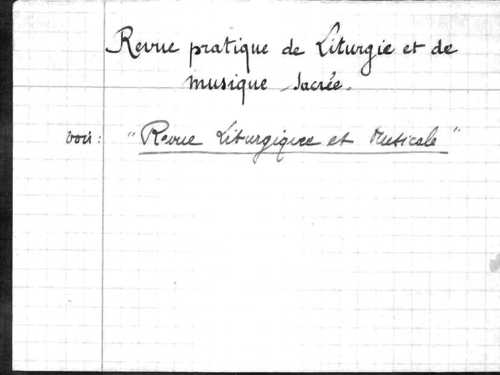 Revue pratique de Liturgie et de
musique sacrée.
voir: "Revue Liturgique et Musicale"